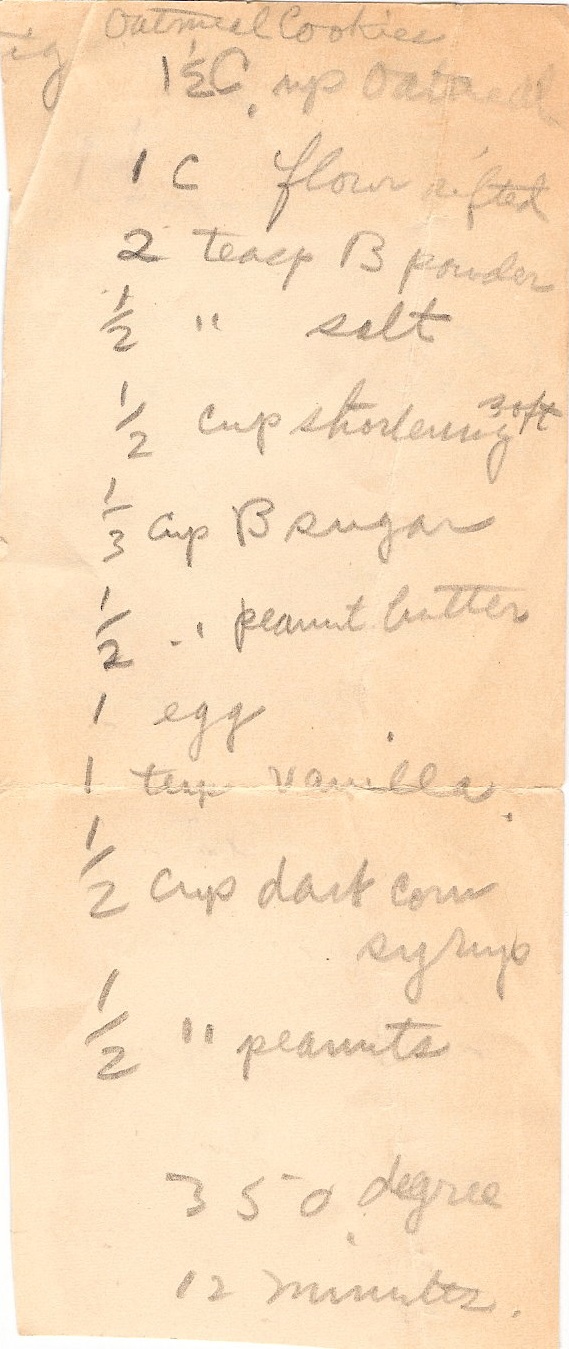 Oatmeal Cookies
1½ C. up Oatmeal
1 C flour sifted
2 teasp B powder
½ " salt
½ cup shortening soft
⅓ cup B sugar
½ " peanut butter
1 egg
1 teasp vanilla.
½ cup dark corn
syrup
½ " peanuts
350 degree
12 minutes.